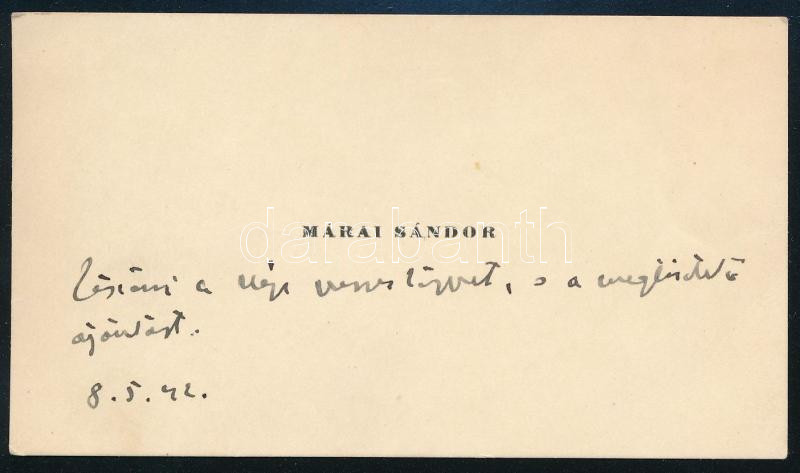 MÁRAI SÁNDOR
darabanth
köszöni a szép verseskönyvet, s a megtisztelő
ajánlást.
8. 5. 42.